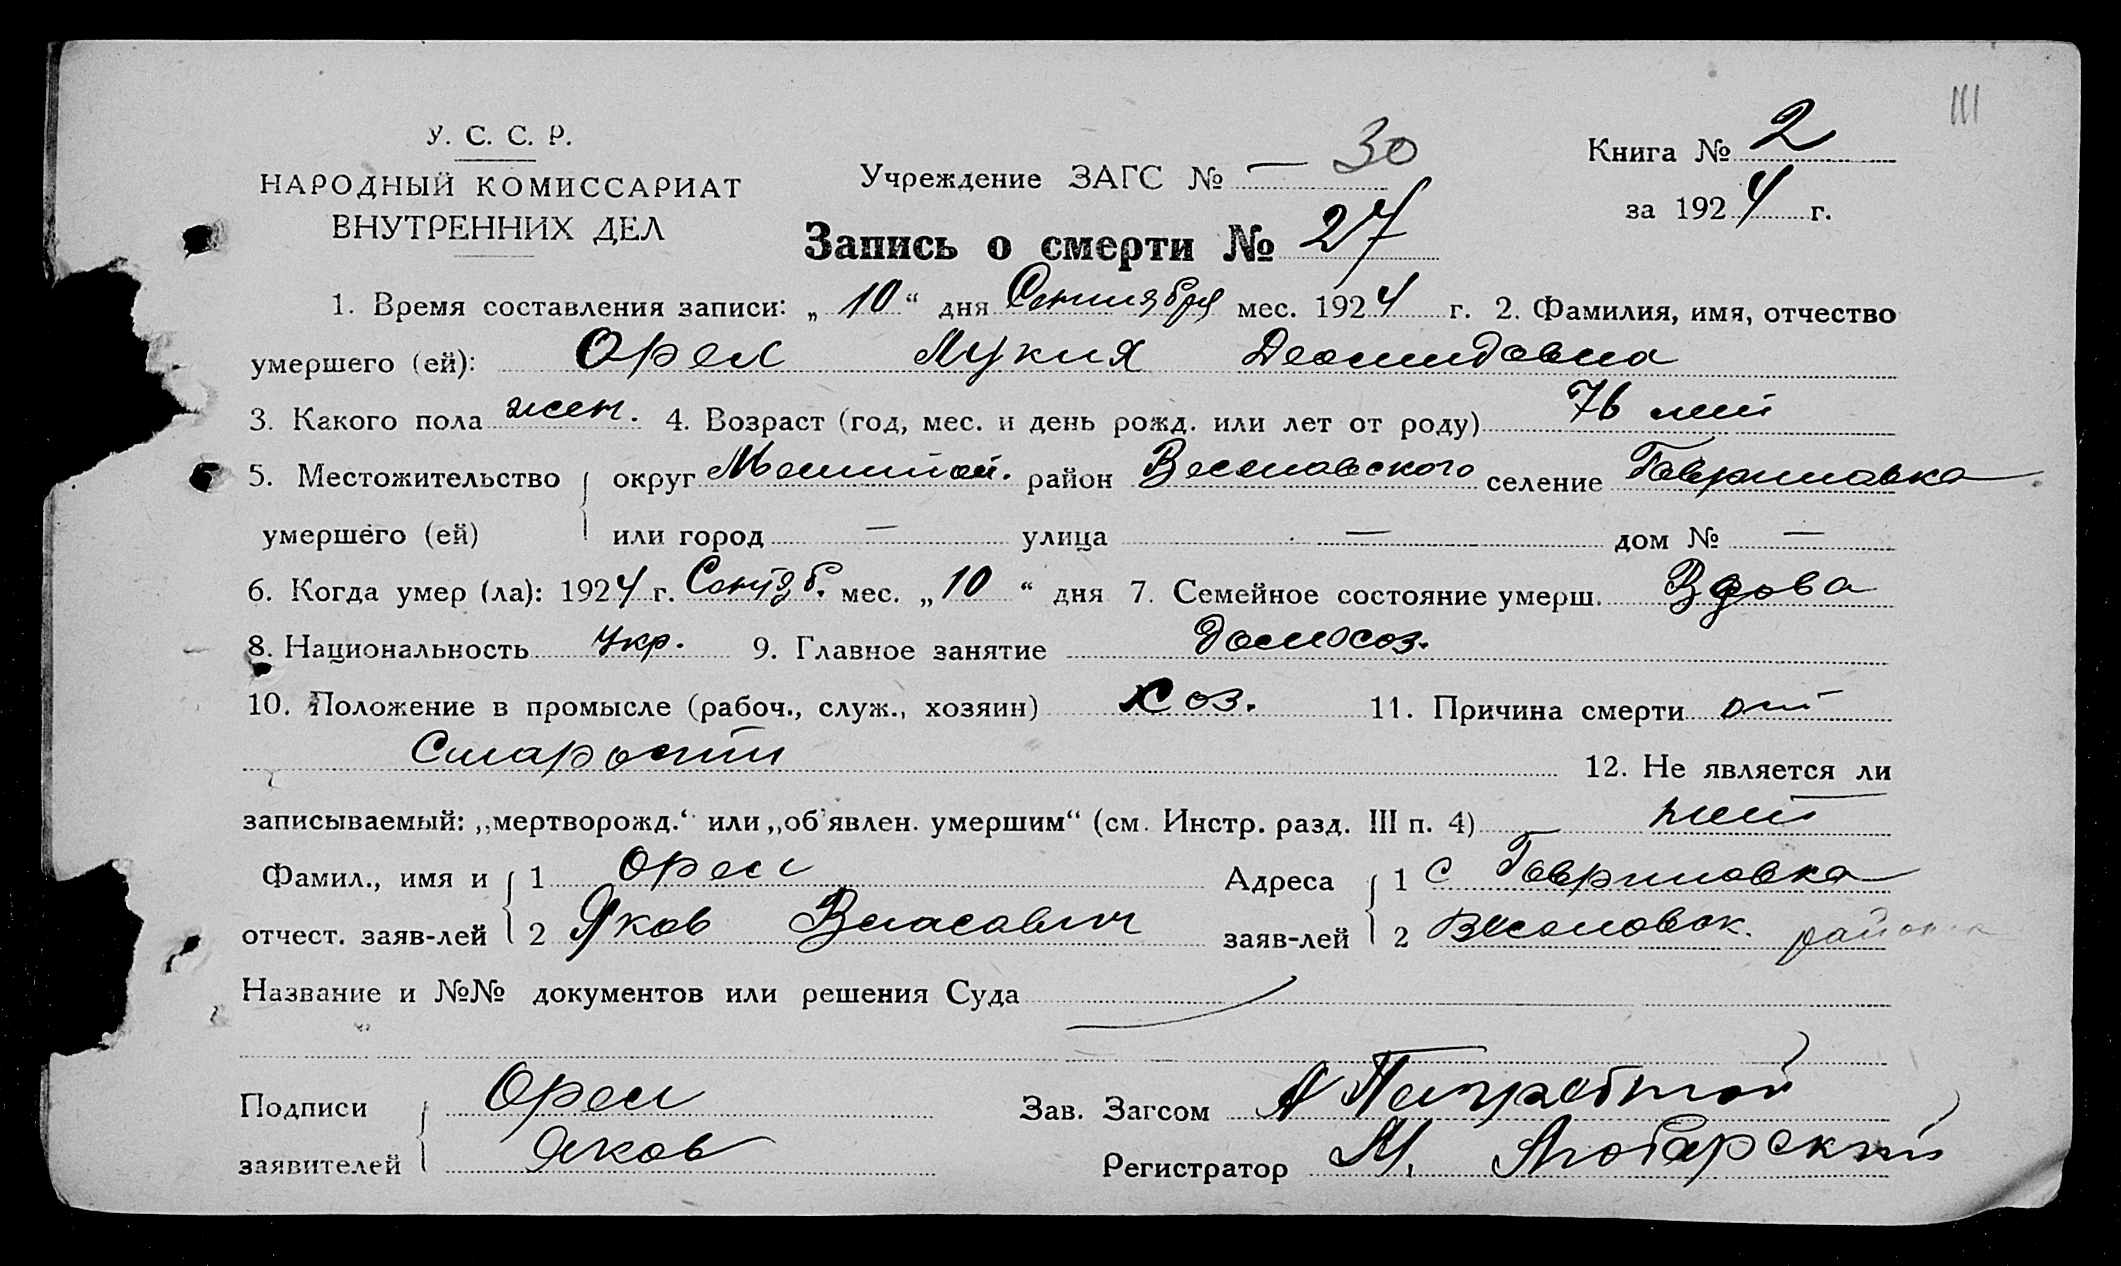 III
У. С. С. Р.
НАРОДНЫЙ КОМИССАРИАТ
ВНУТРЕННИХ ДЕЛ
Учреждение ЗАГС № — 30
Книга № 2
за 1924 г.
Запись о смерти № 27
1. Время составления записи: „10“ дня Сентября мес. 1924 г. 2. Фамилия, имя, отчество
умершего (ей): Орел Лукия Леонидовна
3. Какого пола жен. 4. Возраст (год, мес. и день рожд. или лет от роду) 76 лет
5. Местожительство округ район Веселовского селение Гавриловка
умершего (ей) или город — улица — дом № —
6. Когда умер (ла): 1924 г. Сентяб. мес. „10“ дня 7. Семейное состояние умерш. Вдова
8. Национальность Укр. 9. Главное занятие домохоз.
10. Положение в промысле (рабоч., служ., хозяин) хоз. 11. Причина смерти от
Старости 12. Не является ли
записываемый: „мертворожд.“ или „об'явлен. умершим“ (см. Инстр. разд. III п. 4) нет
Фамил., имя и 1 Орел Адреса 1 с Гавриловка
отчест. заяв-лей 2 Яков Власович заяв-лей 2 Веселовск. района
Название и №№ документов или решения Суда
Подписи Орел Зав. Загсом
заявителей Яков Регистратор М. Любарский